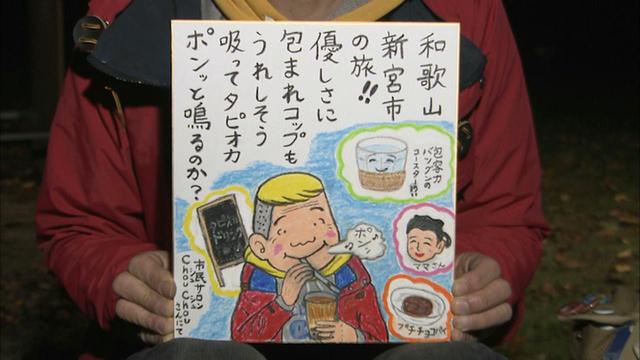 和歌山
新宮市
の旅!!
優しさに
包まれコップも
うれしそう
吸ってタピオカ
ポンッと鳴るのか?
包容力
バツグンの
コースター付!!
ポンッ
ママさん
プチチョコパイ
市民サロン
シュシュ
Chou Chou
さんにて